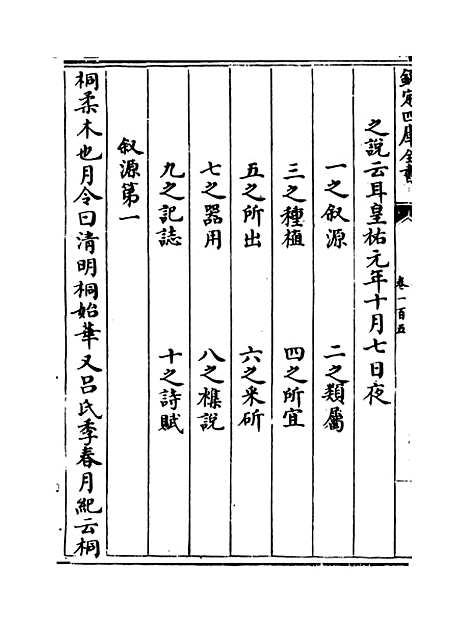 欽定四庫全書
卷一百五
之說云耳皇祐元年十月七日夜
一之叙源 二之類屬
三之種植 四之所宜
五之所出 六之采斫
七之器用 八之襍說
九之記誌 十之詩賦
叙源第一
桐柔木也月令曰清明桐始華又呂氏季春月紀云桐